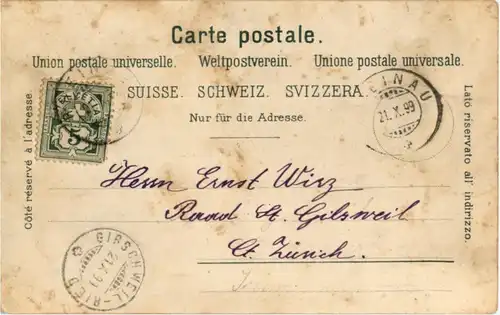 Carte postale.
Union postale universelle. Weltpostverein. Unione postale universale.
SUISSE. SCHWEIZ. SVIZZERA.
Nur für die Adresse.
Côté réservé à l'adresse.
Lato riservato all' indirizzo.
5
21.X.99
Herrn Ernst Wirz
St. Gibsweil
Ct. Zürich.
GIBSCHWEIL-RIED
21.X.99